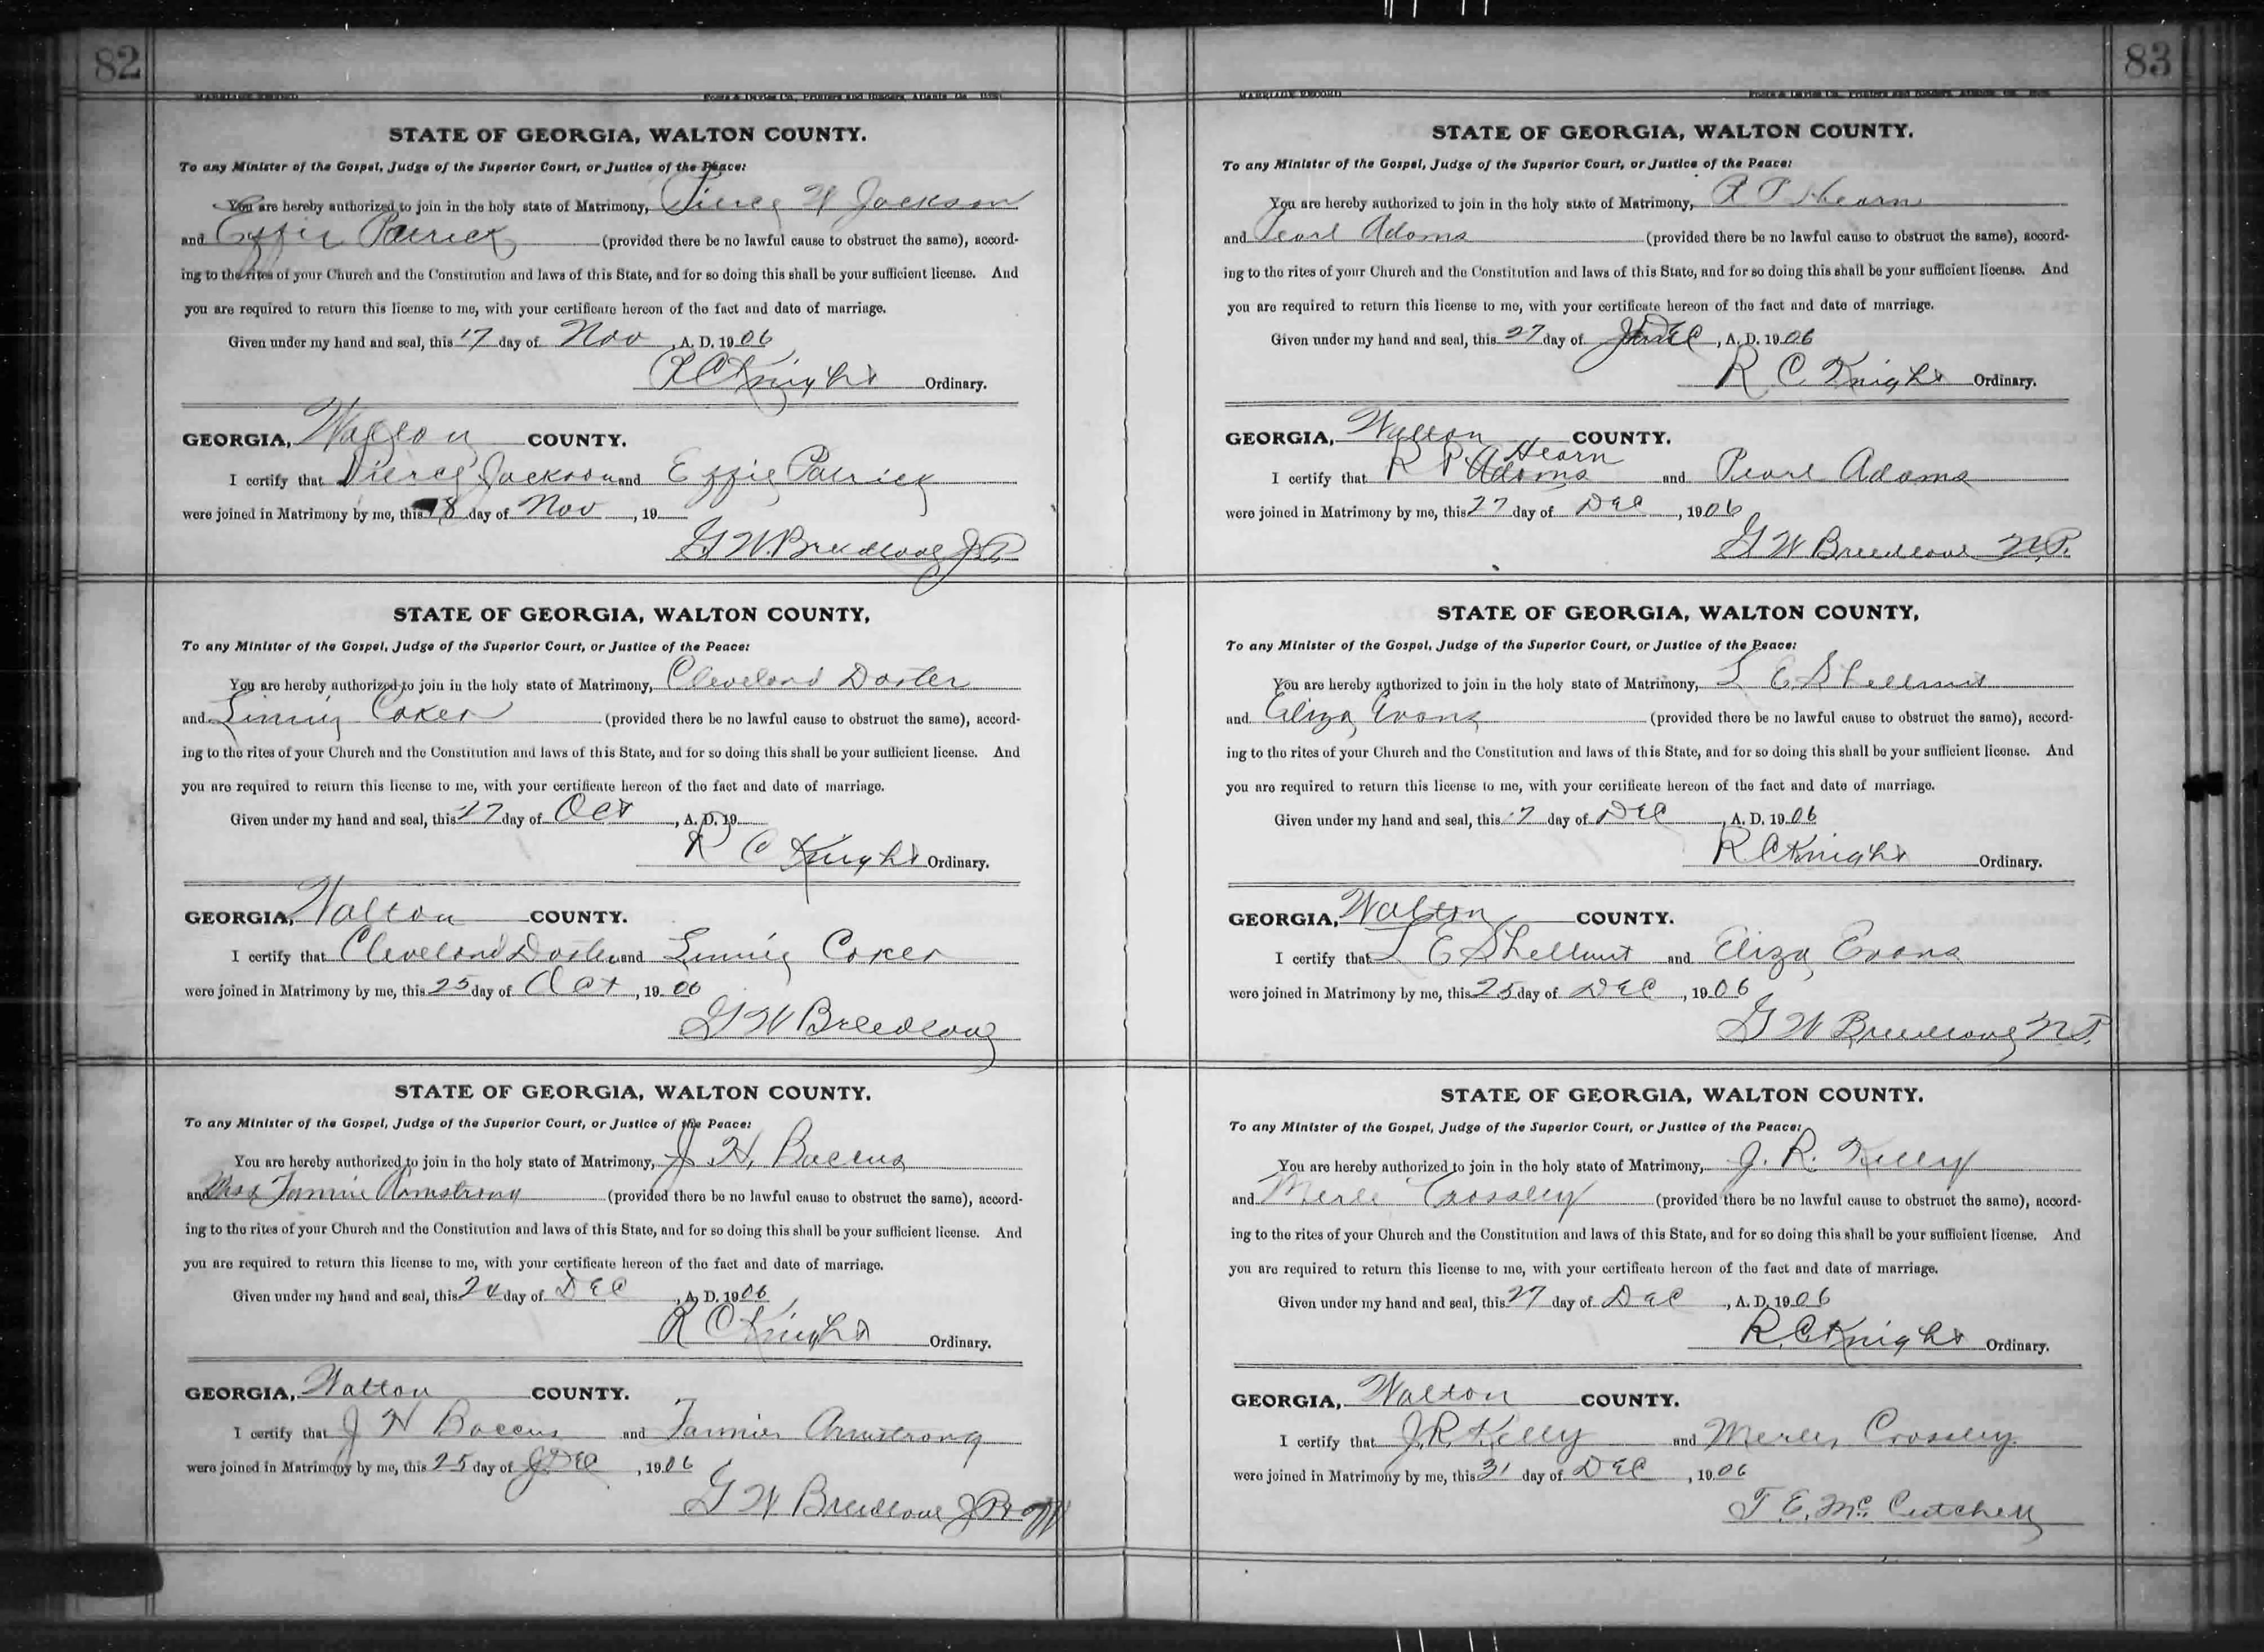 82
MARRIAGE RECORD Foote & Davies Co., Printers and Binders, Atlanta, Ga.
STATE OF GEORGIA, WALTON COUNTY.
To any Minister of the Gospel, Judge of the Superior Court, or Justice of the Peace:
You are hereby authorized to join in the holy state of Matrimony, Pierce W Jackson
and Effie Patrick (provided there be no lawful cause to obstruct the same), accord-
ing to the rites of your Church and the Constitution and laws of this State, and for so doing this shall be your sufficient license. And
you are required to return this license to me, with your certificate hereon of the fact and date of marriage.
Given under my hand and seal, this 17 day of Nov, A. D. 1906
R C Knight Ordinary.
GEORGIA, Walton COUNTY.
I certify that Pierce Jackson and Effie Patrick
were joined in Matrimony by me, this 18 day of Nov, 19
G W Breedlove J.P.
STATE OF GEORGIA, WALTON COUNTY,
To any Minister of the Gospel, Judge of the Superior Court, or Justice of the Peace:
You are hereby authorized to join in the holy state of Matrimony, Cleveland Doster
and Linnie Coker (provided there be no lawful cause to obstruct the same), accord-
ing to the rites of your Church and the Constitution and laws of this State, and for so doing this shall be your sufficient license. And
you are required to return this license to me, with your certificate hereon of the fact and date of marriage.
Given under my hand and seal, this 27 day of Oct, A. D. 19
R C Knight Ordinary.
GEORGIA, Walton COUNTY.
I certify that Cleveland Doster and Linnie Coker
were joined in Matrimony by me, this 25 day of Oct, 1906
G W Breedlove
STATE OF GEORGIA, WALTON COUNTY.
To any Minister of the Gospel, Judge of the Superior Court, or Justice of the Peace:
You are hereby authorized to join in the holy state of Matrimony, J. H. Baccus
and Miss Fannie Armstrong (provided there be no lawful cause to obstruct the same), accord-
ing to the rites of your Church and the Constitution and laws of this State, and for so doing this shall be your sufficient license. And
you are required to return this license to me, with your certificate hereon of the fact and date of marriage.
Given under my hand and seal, this 24 day of DEC, A. D. 1906
R C Knight Ordinary.
GEORGIA, Walton COUNTY.
I certify that J H Baccus and Fannie Armstrong
were joined in Matrimony by me, this 25 day of DEC, 1906
G W Breedlove J.P.
83
MARRIAGE RECORD Foote & Davies Co., Printers and Binders, Atlanta, Ga.
STATE OF GEORGIA, WALTON COUNTY.
To any Minister of the Gospel, Judge of the Superior Court, or Justice of the Peace:
You are hereby authorized to join in the holy state of Matrimony, R P Hearn
and Pearl Adams (provided there be no lawful cause to obstruct the same), accord-
ing to the rites of your Church and the Constitution and laws of this State, and for so doing this shall be your sufficient license. And
you are required to return this license to me, with your certificate hereon of the fact and date of marriage.
Given under my hand and seal, this 27 day of DEC, A. D. 1906
R C Knight Ordinary.
GEORGIA, Walton COUNTY.
Hearn
I certify that R P Adams and Pearl Adams
were joined in Matrimony by me, this 27 day of DEC, 1906
G W Breedlove N.P.
STATE OF GEORGIA, WALTON COUNTY,
To any Minister of the Gospel, Judge of the Superior Court, or Justice of the Peace:
You are hereby authorized to join in the holy state of Matrimony, L E Shellnut
and Eliza Evans (provided there be no lawful cause to obstruct the same), accord-
ing to the rites of your Church and the Constitution and laws of this State, and for so doing this shall be your sufficient license. And
you are required to return this license to me, with your certificate hereon of the fact and date of marriage.
Given under my hand and seal, this 17 day of DEC, A. D. 1906
R C Knight Ordinary.
GEORGIA, Walton COUNTY.
I certify that L E Shellnut and Eliza Evans
were joined in Matrimony by me, this 25 day of DEC, 1906
G W Breedlove N.P.
STATE OF GEORGIA, WALTON COUNTY.
To any Minister of the Gospel, Judge of the Superior Court, or Justice of the Peace:
You are hereby authorized to join in the holy state of Matrimony, J. R. Kelly
and Merle Crossley (provided there be no lawful cause to obstruct the same), accord-
ing to the rites of your Church and the Constitution and laws of this State, and for so doing this shall be your sufficient license. And
you are required to return this license to me, with your certificate hereon of the fact and date of marriage.
Given under my hand and seal, this 27 day of DEC, A. D. 1906
R. C. Knight Ordinary.
GEORGIA, Walton COUNTY.
I certify that J. R. Kelly and Merle Crossley
were joined in Matrimony by me, this 31 day of DEC, 1906
T. E. McCutchen